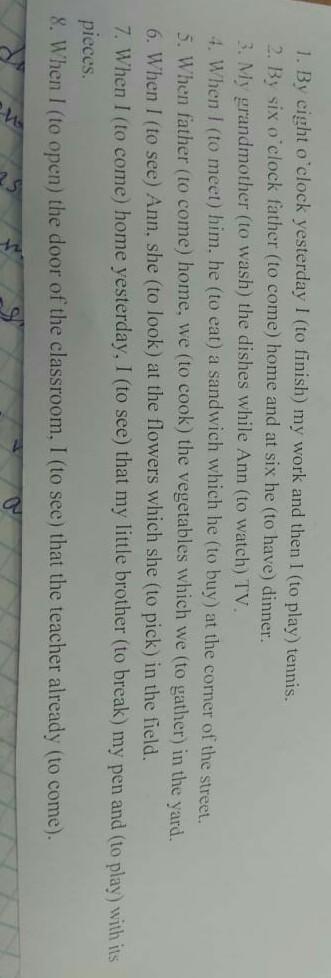 1. By eight o'clock yesterday I (to finish) my work and then I (to play) tennis.
2. By six o'clock father (to come) home and at six he (to have) dinner.
3. My grandmother (to wash) the dishes while Ann (to watch) TV.
4. When I (to meet) him, he (to eat) a sandwich which he (to buy) at the corner of the street.
5. When father (to come) home, we (to cook) the vegetables which we (to gather) in the yard.
6. When I (to see) Ann, she (to look) at the flowers which she (to pick) in the field.
7. When I (to come) home yesterday, I (to see) that my little brother (to break) my pen and (to play) with its
pieces.
8. When I (to open) the door of the classroom, I (to see) that the teacher already (to come).